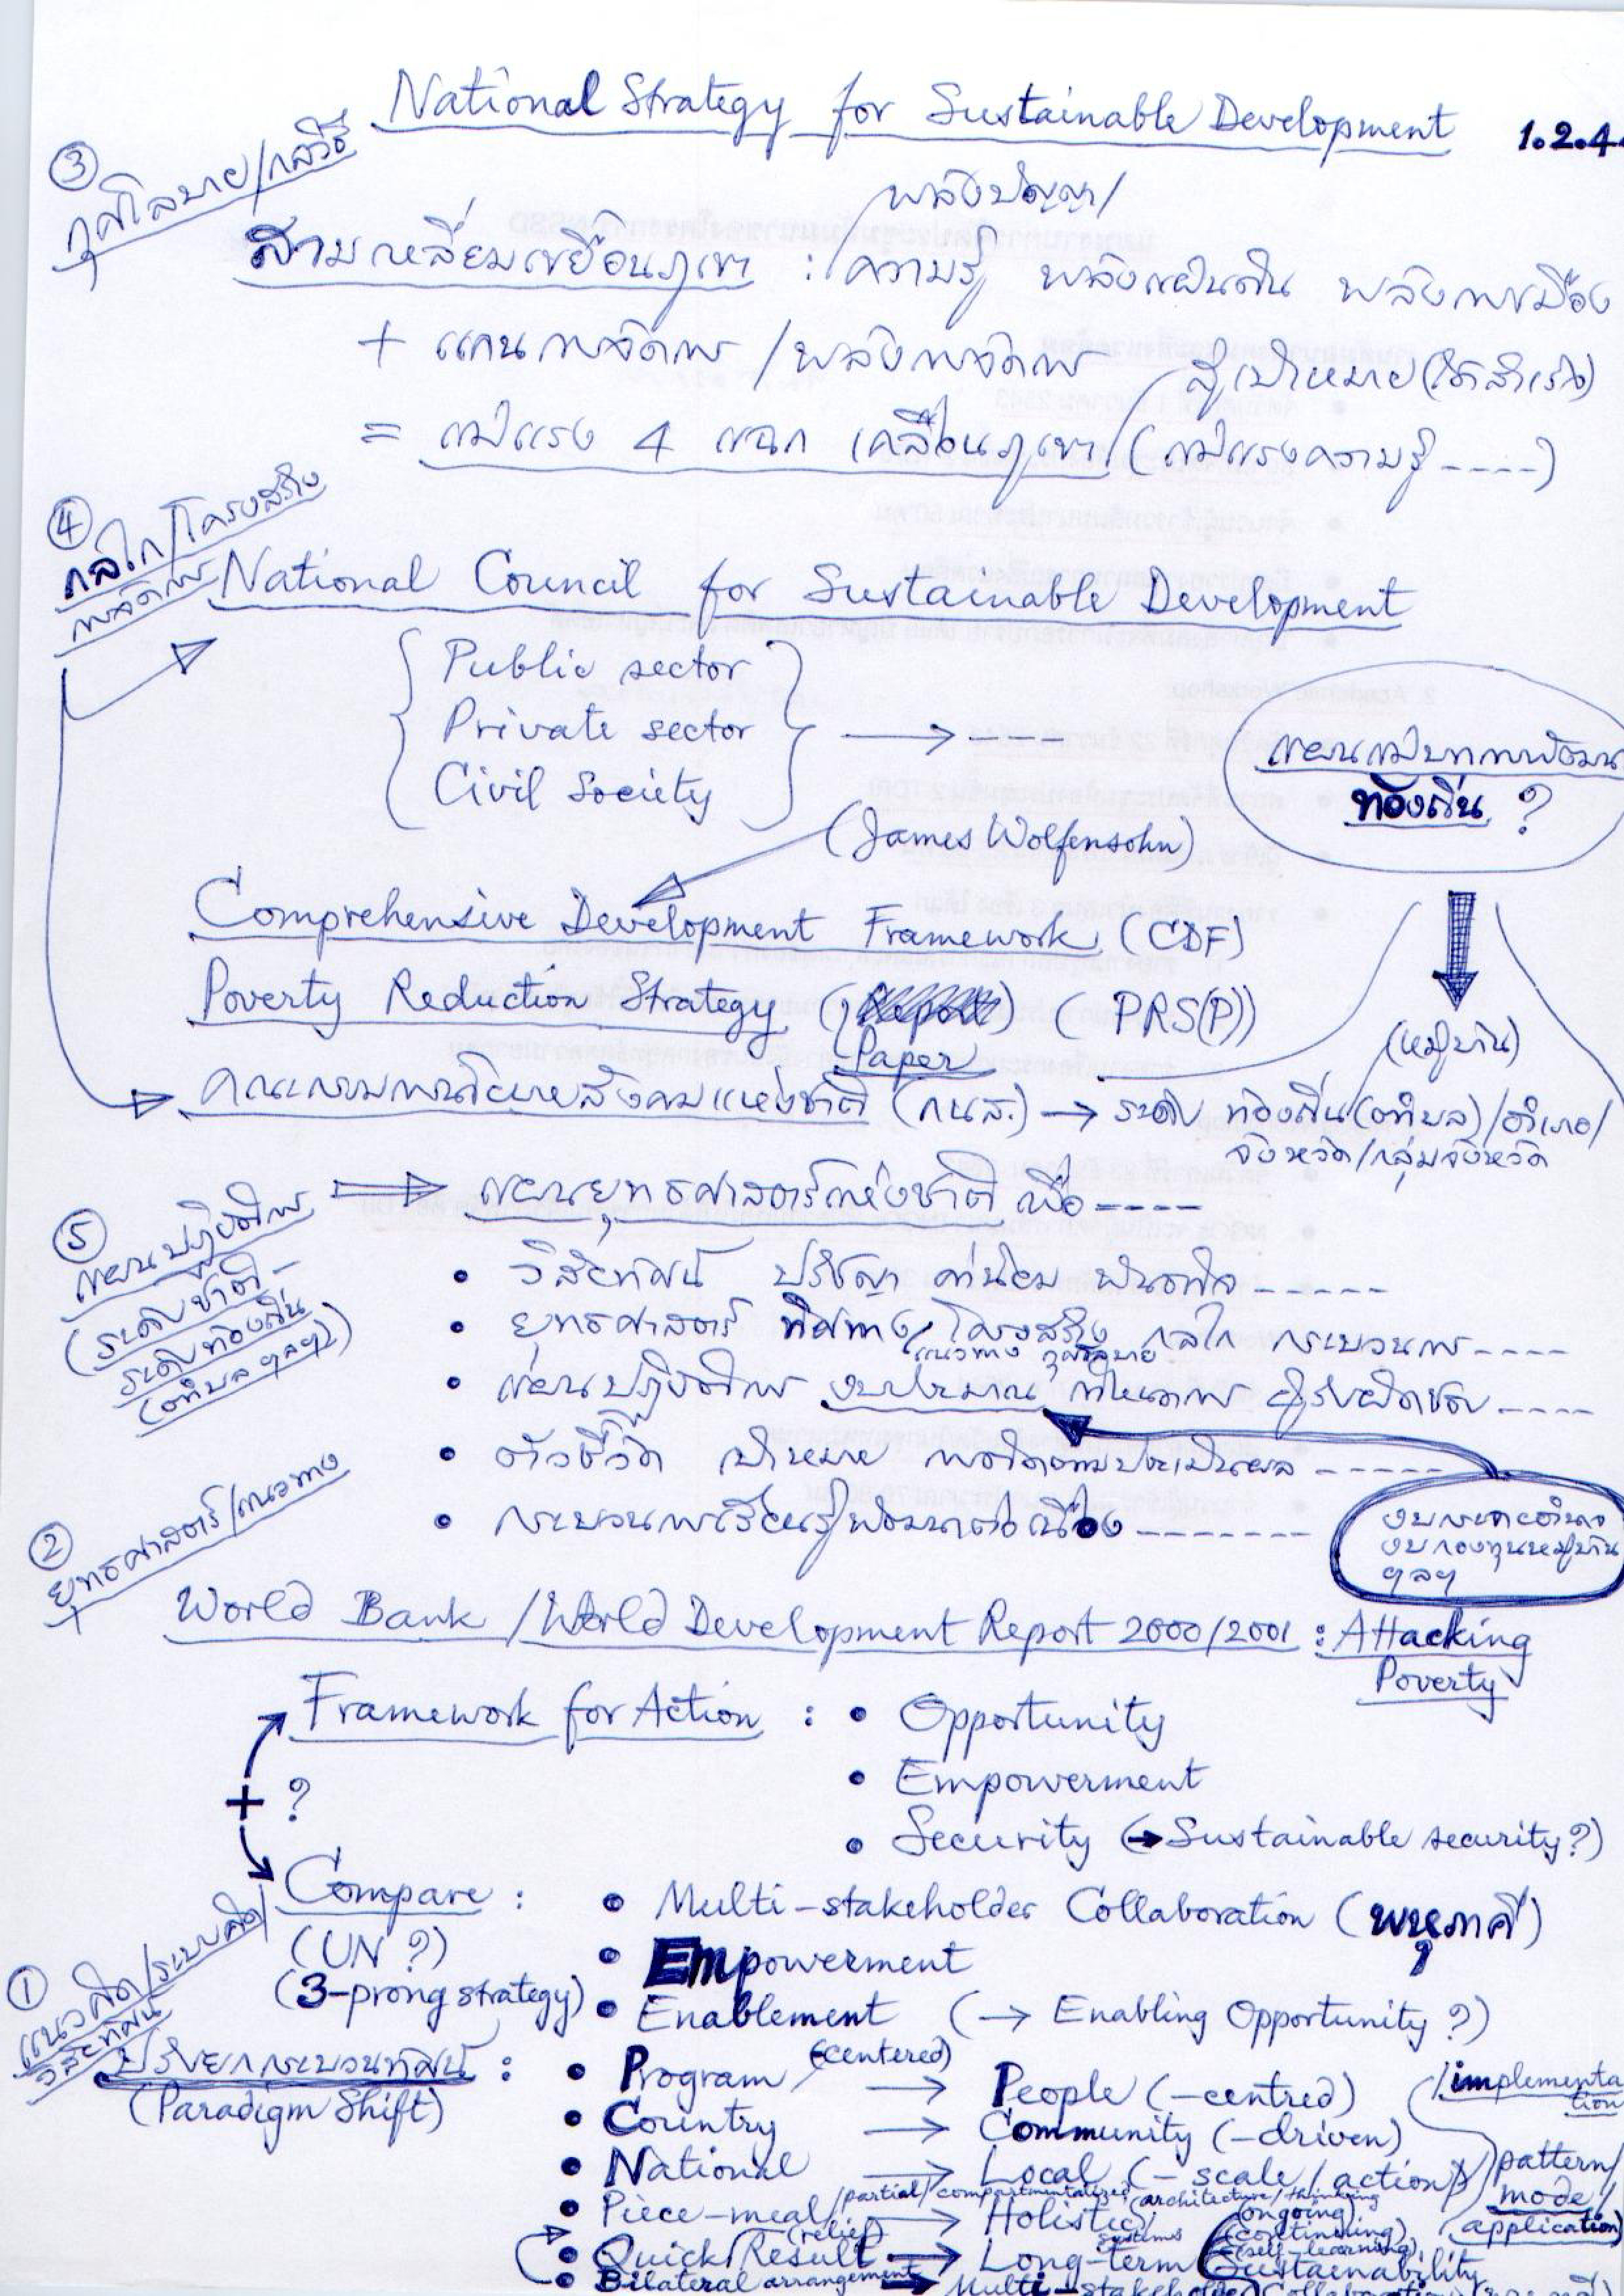 National Strategy for Sustainable Development 1.2.44
③
กุศโลบาย/กลวิธี
พลังปัญญา/
สามเหลี่ยมเขยื้อนภูเขา : ความรู้ พลังแผ่นดิน พลังการเมือง
+ แกนการจัดการ / พลังการจัดการ สู่เป้าหมาย (ให้สำเร็จ)
= แม่แรง 4 แฉก เคลื่อนภูเขา (แม่แรงความรู้ ----)
④
กลไก/โครงสร้าง
การจัดการ
National Council for Sustainable Development
Public sector
Private sector
Civil Society
แผนแม่บทการพัฒนา
ท้องถิ่น ?
(James Wolfensohn)
Comprehensive Development Framework (CDF)
Poverty Reduction Strategy (Report) (PRS(P))
Paper
(หมู่บ้าน)
คณะกรรมการนโยบายสังคมแห่งชาติ (กนส.) → ระดับ ท้องถิ่น (ตำบล) / อำเภอ /
จังหวัด / กลุ่มจังหวัด
⇒ แผนยุทธศาสตร์แห่งชาติ เพื่อ ----
⑤
แผนปฏิบัติการ
(ระดับชาติ -
ระดับท้องถิ่น
(ตำบล ฯลฯ))
• วิสัยทัศน์ ปรัชญา ค่านิยม พันธกิจ -----
• ยุทธศาสตร์ ทิศทาง, โครงสร้าง กลไก กระบวนการ ----
แนวทาง กุศโลบาย
• แผนปฏิบัติการ งบประมาณ กำหนดการ ผู้รับผิดชอบ ----
• ตัวชี้วัด เป้าหมาย การติดตามประเมินผล -----
• กระบวนการเรียนรู้พัฒนาต่อเนื่อง -------
งบกระจายอำนาจ
งบกองทุนหมู่บ้าน
ฯลฯ
②
ยุทธศาสตร์/แนวทาง
World Bank / World Development Report 2000/2001 : Attacking
Poverty
Framework for Action : • Opportunity
+ ?
• Empowerment
• Security (→ Sustainable security?)
Compare : • Multi-stakeholder Collaboration (พหุภาคี)
(UN ?) • Empowerment
(3-prong strategy) • Enablement (→ Enabling Opportunity ?)
①
แนวคิด/ระบบคิด/
วิสัยทัศน์
ปรับยกกระบวนทัศน์ : • Program (-centered) → People (-centred)
(Paradigm Shift)
• Country → Community (-driven)
• National → Local (- scale / action)
/implementa
tion
pattern/
mode/
application)
• Piece-meal /partial/compartmentalized → Holistic /architecture/thinking
systems
• Quick Result (relief) → Long-term Sustainability
(ongoing)
(continuing)
(self-learning)
• Bilateral arrangement → Multi-stakeholder Collaboration